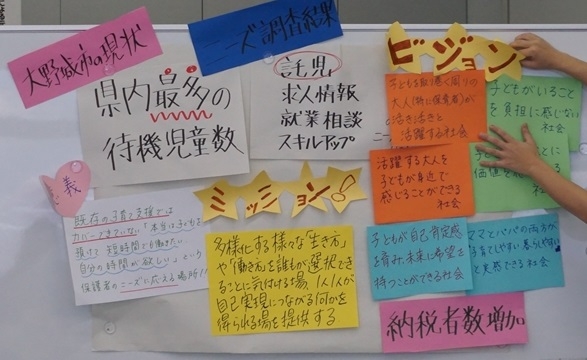 大野城市の現状
ニーズ調査結果
県内最多の
待機児童数
託児
求人情報
就業相談
スキルアップ
ビジョン
子どもを取り巻く周りの
大人(特に保育者)が
活き活きと
活躍する社会
子どもがいること
を負担に感じない
社会
活躍する大人を
子どもが身近で
感じることができる
社会
とに
価値を
社会
子どもが自己肯定感
を育み、未来に希望を
持つことができる社会
ママとパパの両方が
子育てしやすい、暮らしやすい
と実感できる社会
納税者数増加
義
既存の子育て支援では
カバーできていない「本当は子どもを
預けて短時間でも働きたい
自分の時間が欲しい」という
保護者のニーズに応える場所!!
ミッション!
多様化する様々な「生き方」
や「働き方」を誰もが選択でき
ることに気付ける場、1人1人が
自己実現につながる何かを
得られる場を提供する